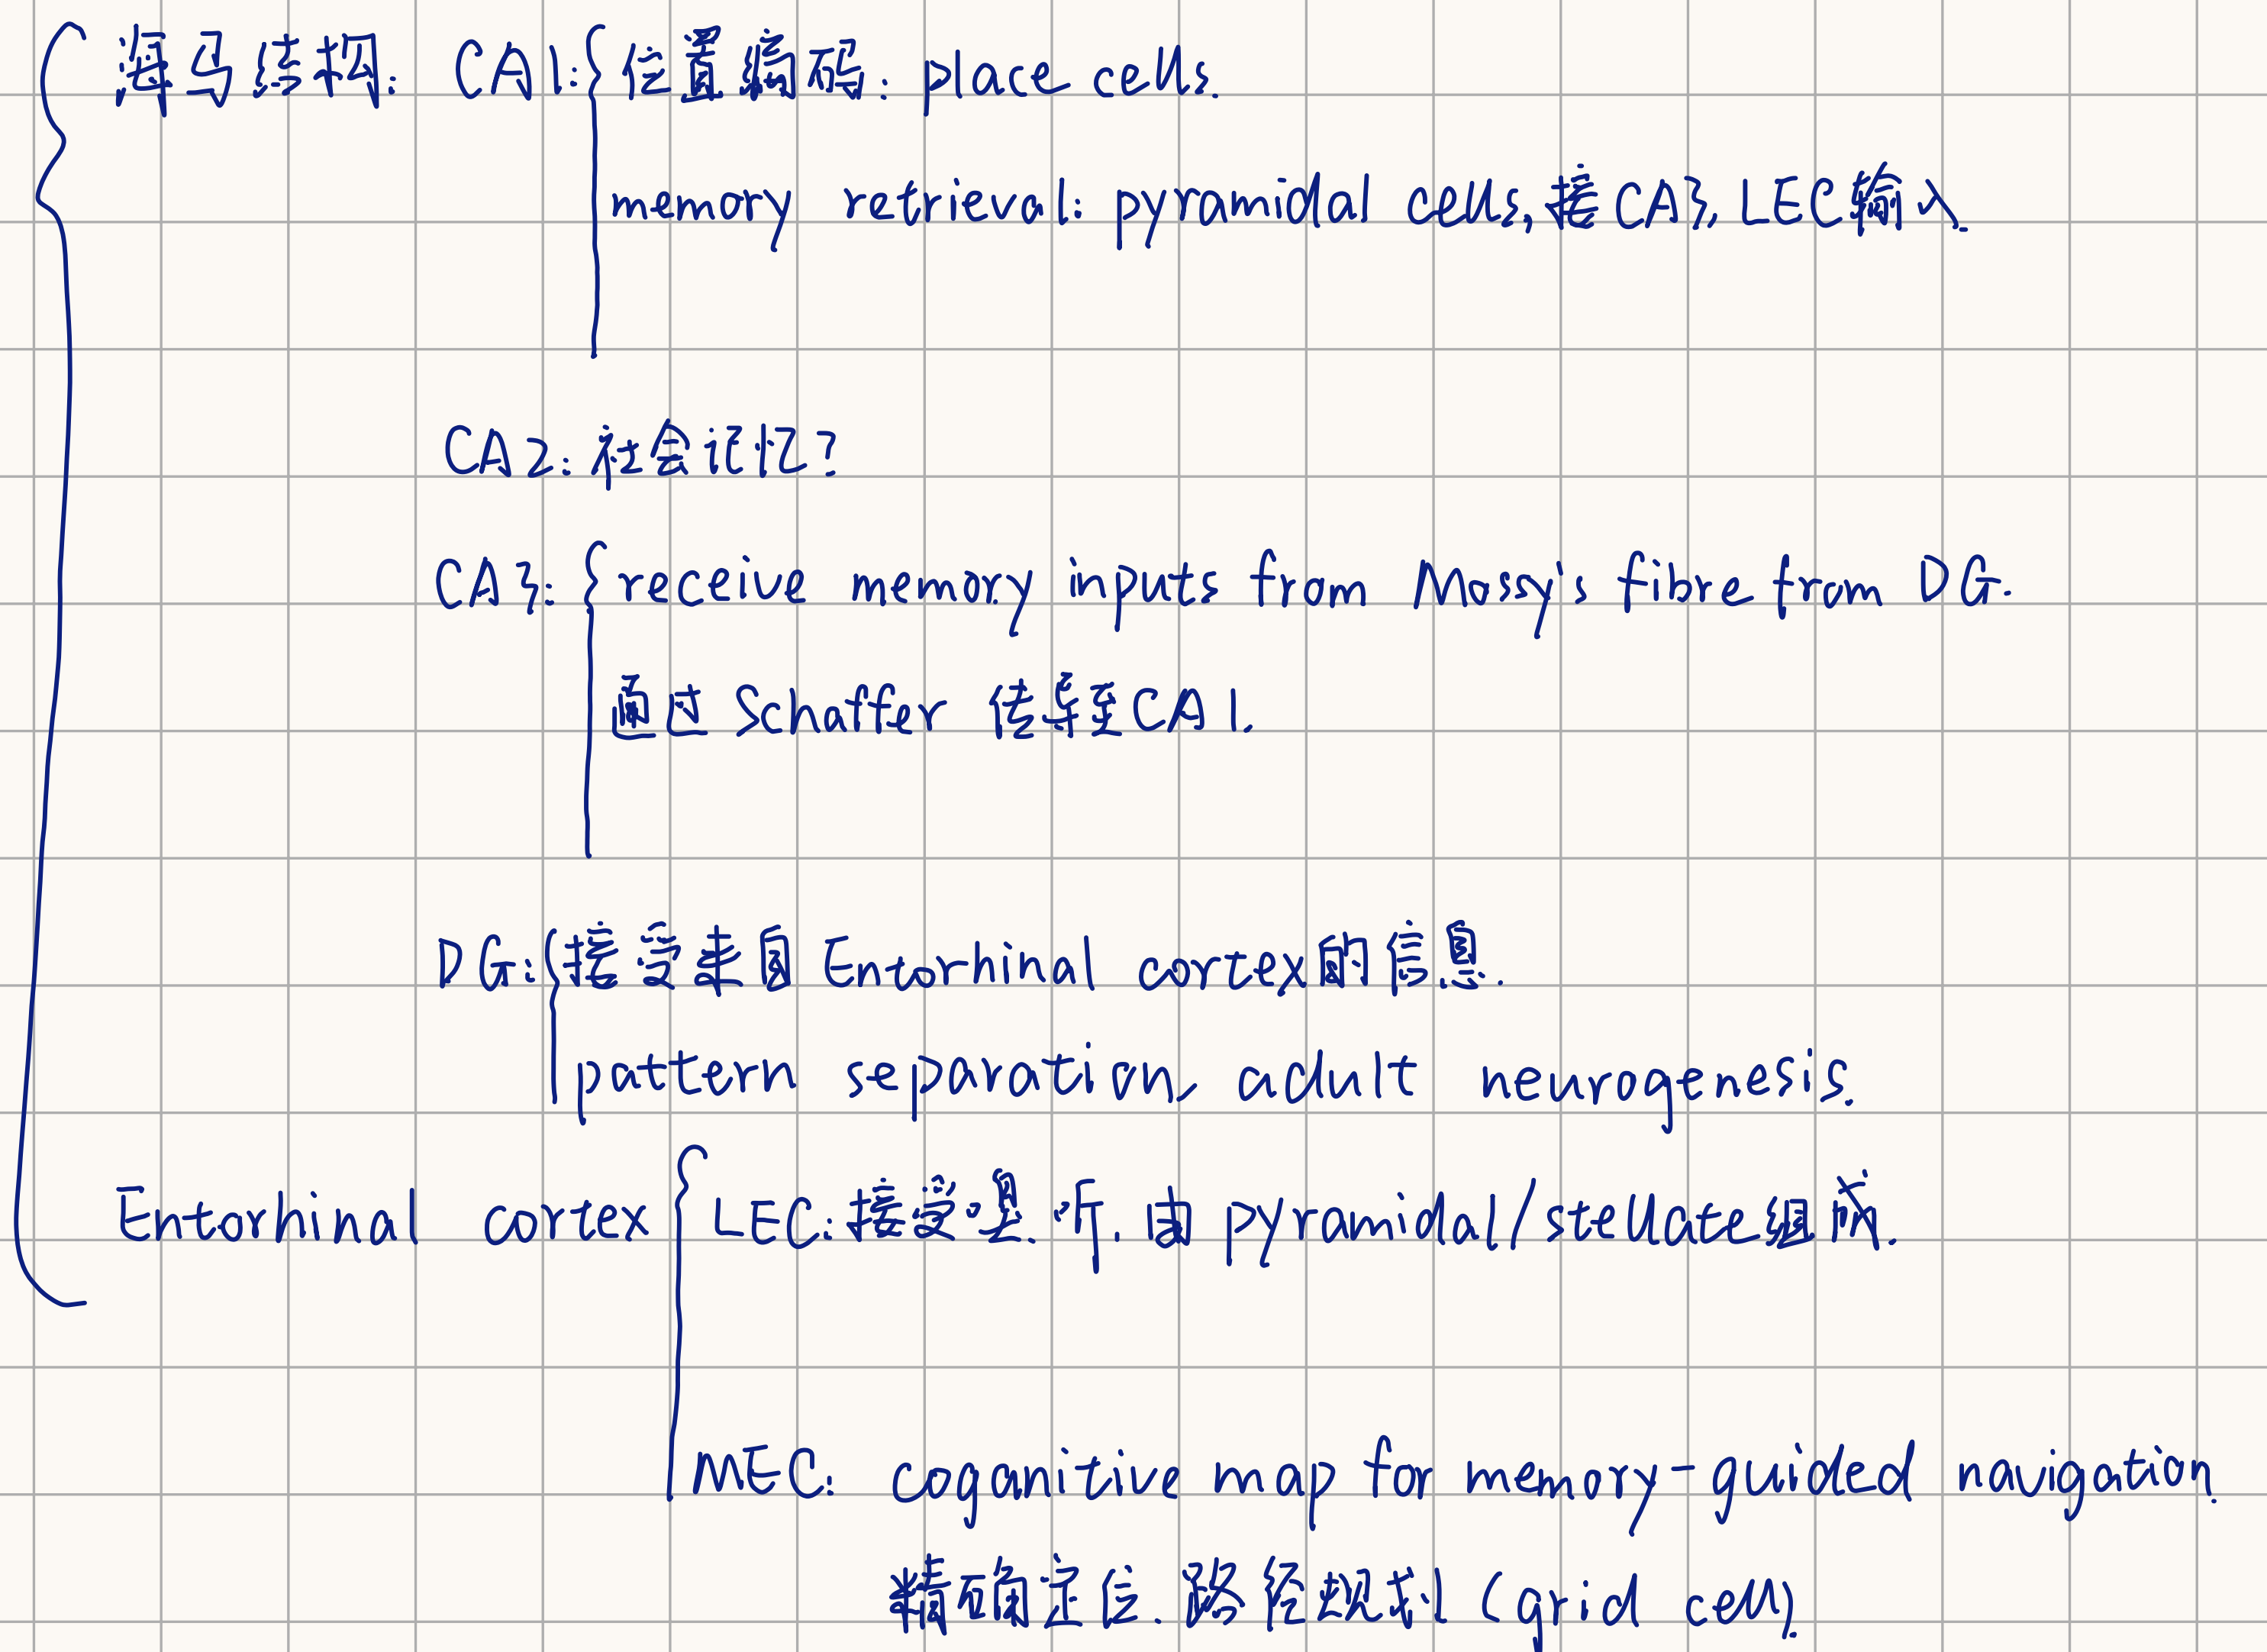 海马结构: CA1: 位置编码: place cells.
memory retrieval: pyramidal cells, 接CA3, LEC输入.
CA2: 社会记忆?
CA3: receive memory inputs from Mossy's fibre from DG.
通过 Schaffer 传导至CA1.
DG: 接受来自 Entorhinal cortex的信息.
pattern separation, adult neurogenesis.
Entorhinal cortex LEC: 接受嗅.听. 由 pyramidal/stellate组成.
MEC: cognitive map for memory-guided navigation.
精确定位.路径规划 (grid cell).